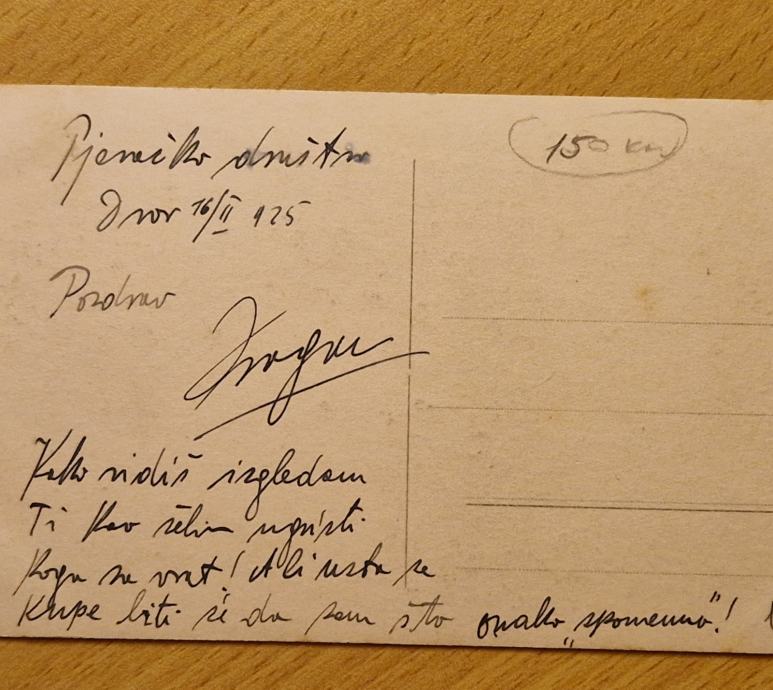 Pjevačko društvo
Dvor 16/II 925
150 km
Pozdrav
Dragan
Kako vidiš izgledam
Ti kao želim ugristi
koga za vrat! Ali usta se
Kupe biti će da sam što onako „spomenuo"!